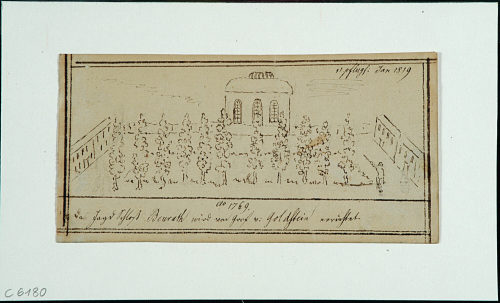 v. Pflugf: Jan 1819
ao 1769.
Das Jagd Schloß Benrath wird von Graf v. Goldstein errichtet
C 6180